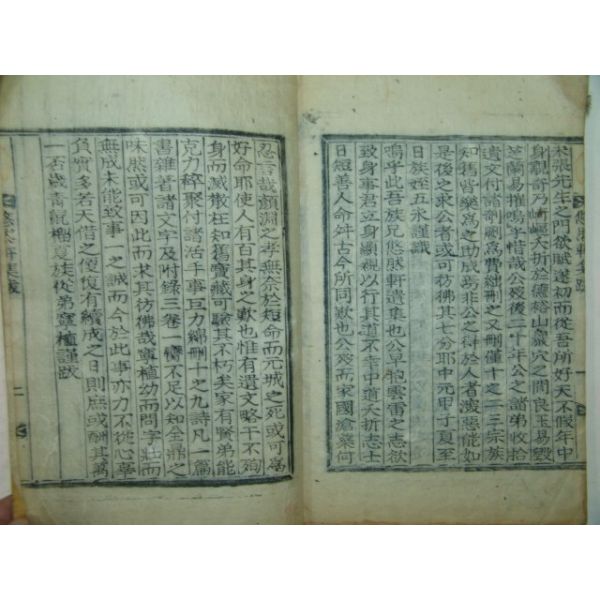 宋張先生之門欲賦遂初而從吾所好天不假年中
身觀奇乃崎嶇夭折於德裕山巖穴之間良玉易毀
芝蘭易摧嗚乎惜哉公歿後二十年公之諸弟收拾
遺文付諸剞劂爲費絀刪之又刪僅十之二三宗族
知舊皆樂爲之助成焉非公之得於人者深惡能如
是後之求公者或可彷彿其七分耶中元甲子夏至
日族姪五永謹識
嗚乎此吾族兄悠然軒遺集也公早抱雲雷之志欲
致身事君立身顯親以行其道不幸中道夭折志士
日短善人命舛古今所同歎也公歿而家國滄桑何
忍言哉顏淵之孝無奈於短命而元城之死或可爲
好命耶使人有百其身之歎也惟有遺文略干不殉
身而滅散在知舊寶藏可驗其不朽矣家有賢弟能
克力稡聚付諸活手事巨力綿刪十之九詩凡一篇
書雜著諸文字及附錄三卷一臠不足以知全鼎之
味然或可因此而求其彷彿哉寗植幼而問字壯而
無成末能致事一之誠而今於此事亦力不從心事
負實多若天借之便復有續成之日則庶或酬其萬
一否歲靑說榴夏族從弟寗植謹跋
二